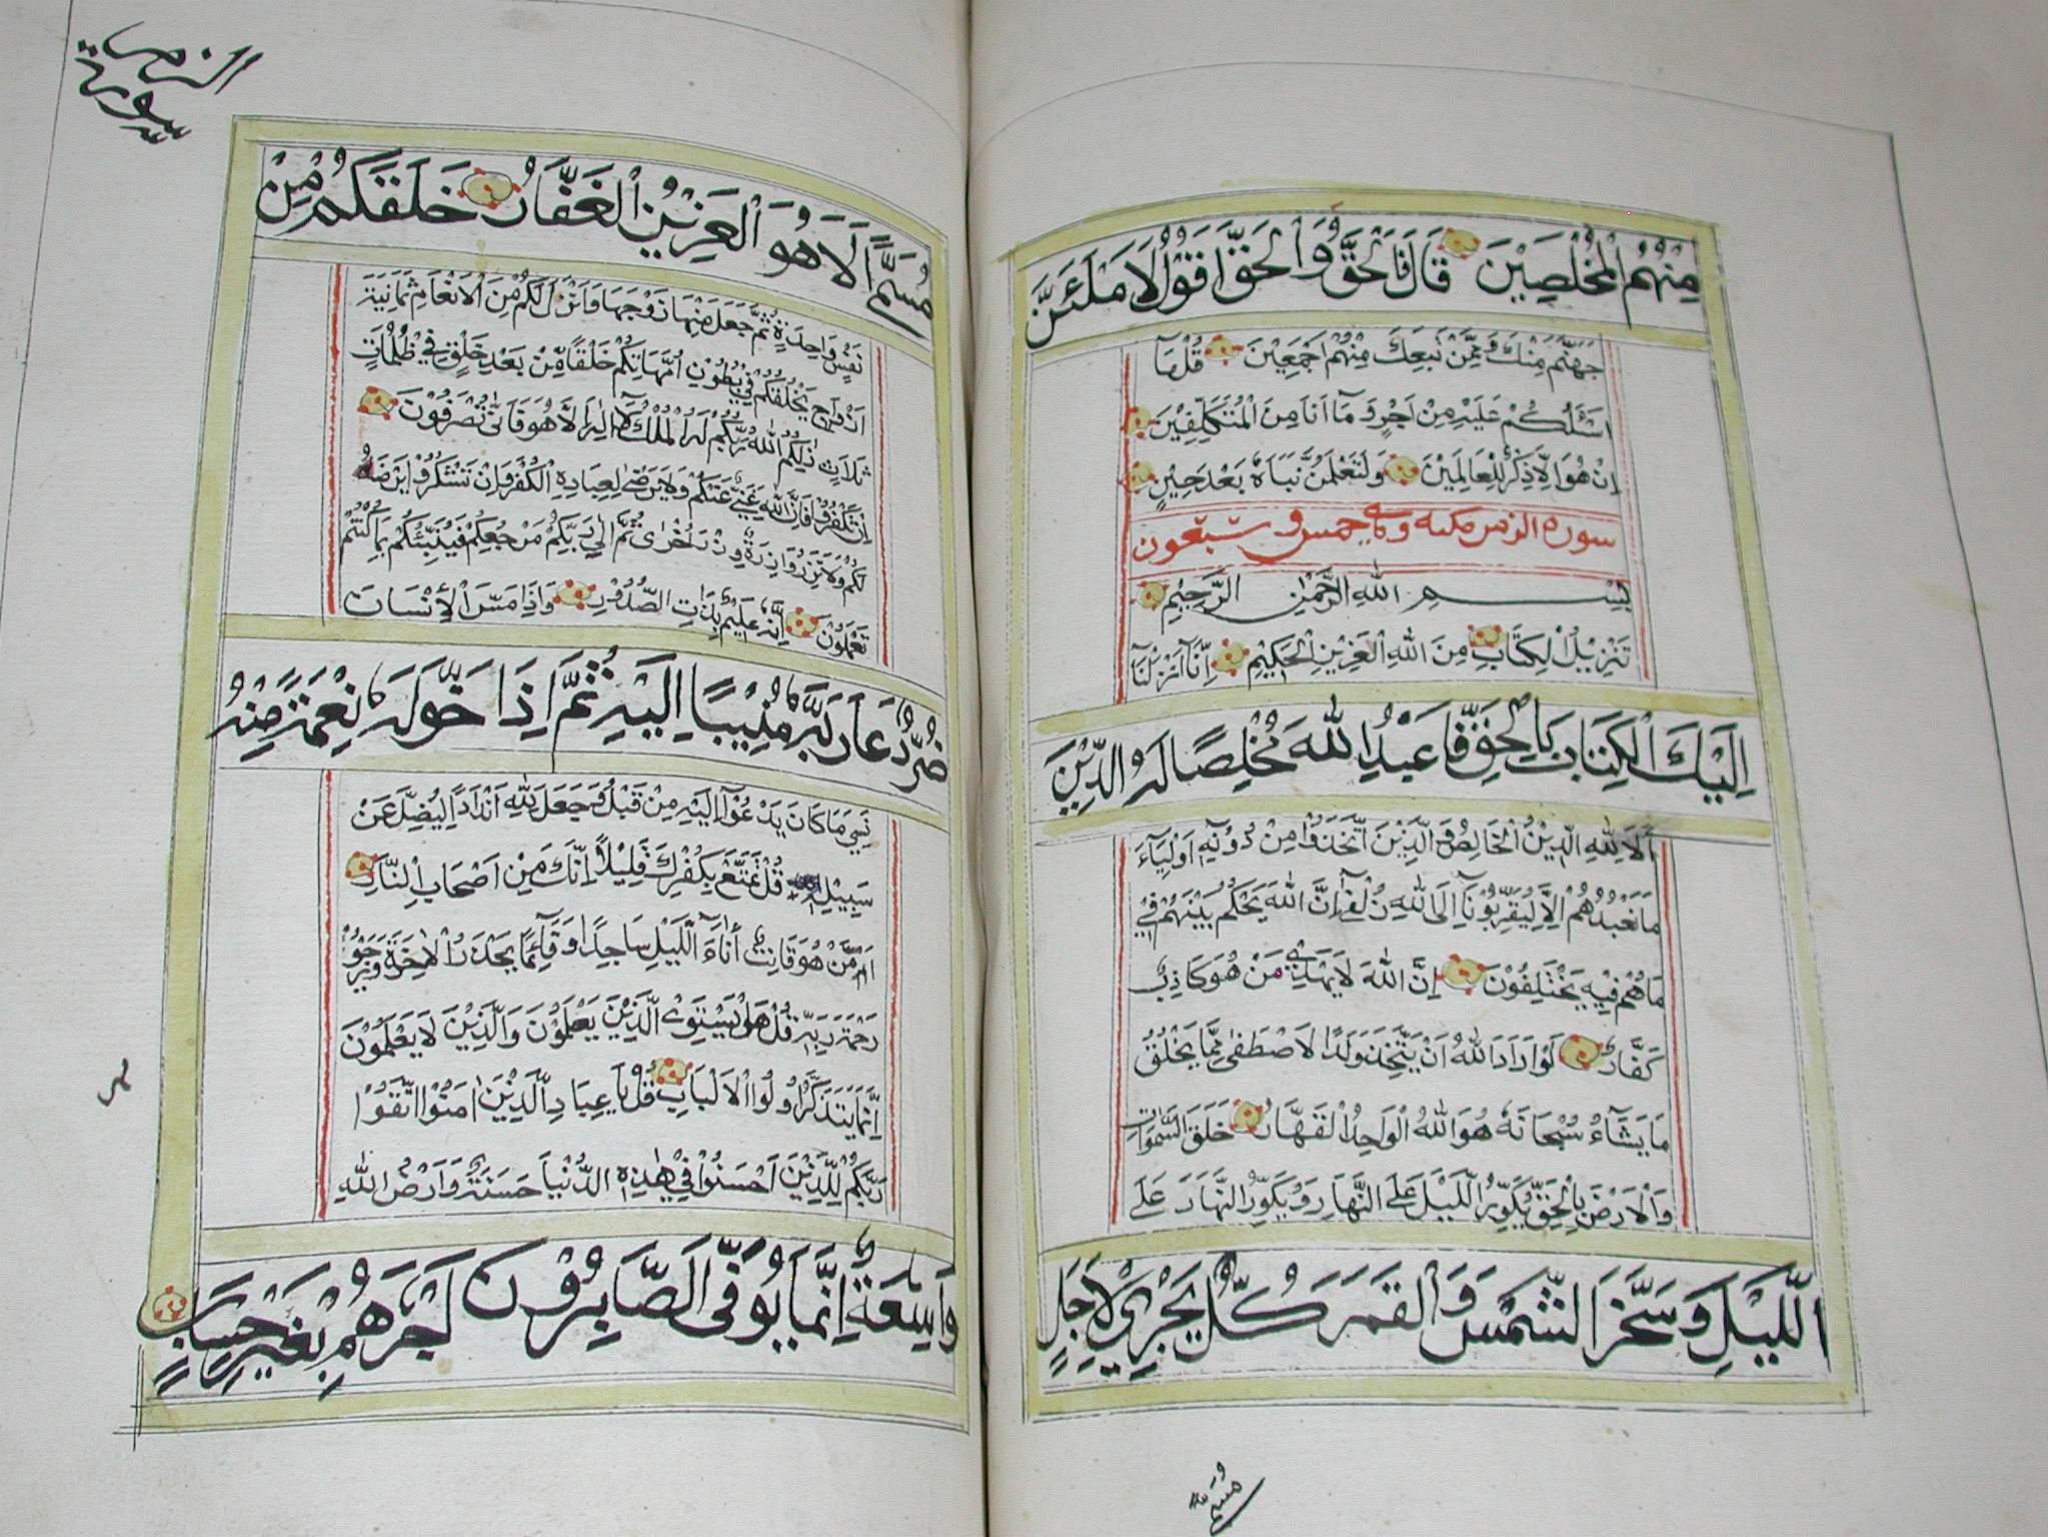 مِنْهُمُ الْمُخْلَصِيْنَ قَالَ فَالْحَقُّ وَالْحَقَّ اَقُوْلُ لَاَمْلَئَنَّ
جَهَنَّمَ مِنْكَ وَمِمَّنْ تَبِعَكَ مِنْهُمْ اَجْمَعِيْنَ قُلْ مَآ
اَسْئَلُكُمْ عَلَيْهِ مِنْ اَجْرٍ وَمَآ اَنَا مِنَ الْمُتَكَلِّفِيْنَ
اِنْ هُوَ اِلَّا ذِكْرٌ لِلْعَالَمِيْنَ وَلَتَعْلَمُنَّ نَبَاَهُ بَعْدَ حِيْنٍ
سورة الزمر مكية وهي خمس و سبعون
بِسْمِ اللهِ الرَّحْمٰنِ الرَّحِيْمِ
تَنْزِيْلُ الْكِتَابِ مِنَ اللهِ الْعَزِيْزِ الْحَكِيْمِ اِنَّآ اَنْزَلْنَآ
اِلَيْكَ الْكِتَابَ بِالْحَقِّ فَاعْبُدِ اللهَ مُخْلِصًا لَهُ الدِّيْنَ
اَلَا لِلّٰهِ الدِّيْنُ الْخَالِصُ وَالَّذِيْنَ اتَّخَذُوْا مِنْ دُوْنِهِ اَوْلِيَآءَ
مَا نَعْبُدُهُمْ اِلَّا لِيُقَرِّبُوْنَآ اِلَى اللهِ زُلْفٰى اِنَّ اللهَ يَحْكُمُ بَيْنَهُمْ فِيْ
مَا هُمْ فِيْهِ يَخْتَلِفُوْنَ اِنَّ اللهَ لَا يَهْدِيْ مَنْ هُوَ كَاذِبٌ
كَفَّارٌ لَوْ اَرَادَ اللهُ اَنْ يَتَّخِذَ وَلَدًا لَاصْطَفٰى مِمَّا يَخْلُقُ
مَا يَشَآءُ سُبْحَانَهُ هُوَ اللهُ الْوَاحِدُ الْقَهَّارُ خَلَقَ السَّمٰوَاتِ
وَالْاَرْضَ بِالْحَقِّ يُكَوِّرُ اللَّيْلَ عَلَى النَّهَارِ وَيُكَوِّرُ النَّهَارَ عَلَى
اللَّيْلِ وَسَخَّرَ الشَّمْسَ وَالْقَمَرَ كُلٌّ يَجْرِيْ لِاَجَلٍ
مسمى
سورة الزمر
مُسَمًّى اَلَا هُوَ الْعَزِيْزُ الْغَفَّارُ خَلَقَكُمْ مِنْ
نَفْسٍ وَاحِدَةٍ ثُمَّ جَعَلَ مِنْهَا زَوْجَهَا وَاَنْزَلَ لَكُمْ مِنَ الْاَنْعَامِ ثَمَانِيَةَ
اَزْوَاجٍ يَخْلُقُكُمْ فِيْ بُطُوْنِ اُمَّهَاتِكُمْ خَلْقًا مِنْ بَعْدِ خَلْقٍ فِيْ ظُلُمَاتٍ
ثَلَاثٍ ذٰلِكُمُ اللهُ رَبُّكُمْ لَهُ الْمُلْكُ لَآ اِلٰهَ اِلَّا هُوَ فَاَنّٰى تُصْرَفُوْنَ
اِنْ تَكْفُرُوْا فَاِنَّ اللهَ غَنِيٌّ عَنْكُمْ وَلَا يَرْضٰى لِعِبَادِهِ الْكُفْرَ وَاِنْ تَشْكُرُوْا يَرْضَهُ
لَكُمْ وَلَا تَزِرُ وَازِرَةٌ وِزْرَ اُخْرٰى ثُمَّ اِلٰى رَبِّكُمْ مَرْجِعُكُمْ فَيُنَبِّئُكُمْ بِمَا كُنْتُمْ
تَعْمَلُوْنَ اِنَّهُ عَلِيْمٌ بِذَاتِ الصُّدُوْرِ وَاِذَا مَسَّ الْاِنْسَانَ
ضُرٌّ دَعَا رَبَّهُ مُنِيْبًا اِلَيْهِ ثُمَّ اِذَا خَوَّلَهُ نِعْمَةً مِنْهُ
نَسِيَ مَا كَانَ يَدْعُوْآ اِلَيْهِ مِنْ قَبْلُ وَجَعَلَ لِلّٰهِ اَنْدَادًا لِيُضِلَّ عَنْ
سَبِيْلِهِ قُلْ تَمَتَّعْ بِكُفْرِكَ قَلِيْلًا اِنَّكَ مِنْ اَصْحَابِ النَّارِ
اَمَّنْ هُوَ قَانِتٌ اٰنَآءَ اللَّيْلِ سَاجِدًا وَقَآئِمًا يَحْذَرُ الْاٰخِرَةَ وَيَرْجُوْا
رَحْمَةَ رَبِّهِ قُلْ هَلْ يَسْتَوِي الَّذِيْنَ يَعْلَمُوْنَ وَالَّذِيْنَ لَا يَعْلَمُوْنَ
اِنَّمَا يَتَذَكَّرُ اُولُوا الْاَلْبَابِ قُلْ يَا عِبَادِ الَّذِيْنَ اٰمَنُوا اتَّقُوْا
رَبَّكُمْ لِلَّذِيْنَ اَحْسَنُوْا فِيْ هٰذِهِ الدُّنْيَا حَسَنَةٌ وَاَرْضُ اللهِ
وَاسِعَةٌ اِنَّمَا يُوَفَّى الصَّابِرُوْنَ اَجْرَهُمْ بِغَيْرِ حِسَابٍ